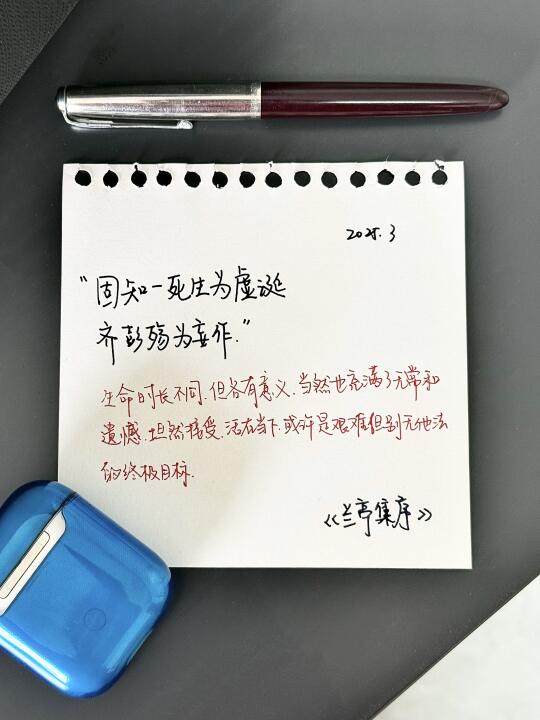 2025.3
“固知一死生为虚诞
齐彭殇为妄作.”
生命时长不同.但各有意义.当然也充满了无常和
遗憾.坦然接受.活在当下.或许是艰难但别无他法
的终极目标.
《兰亭集序》